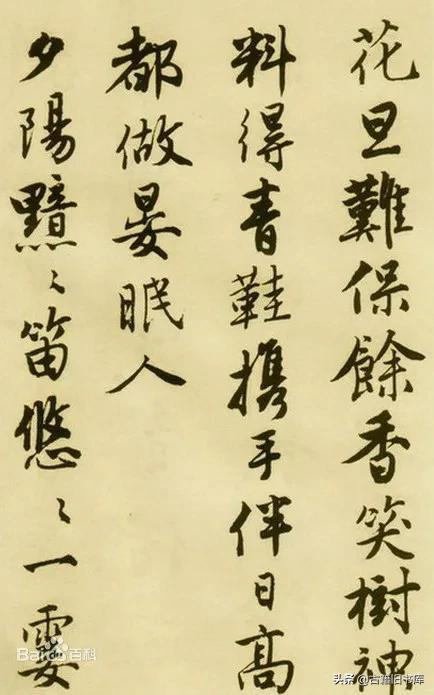 花旦難保餘香笑樹神
料得青鞋攜手伴日高
都做晏眠人
夕陽黯〻笛悠〻一霎
Baidu百科
头条 @古籍旧书库